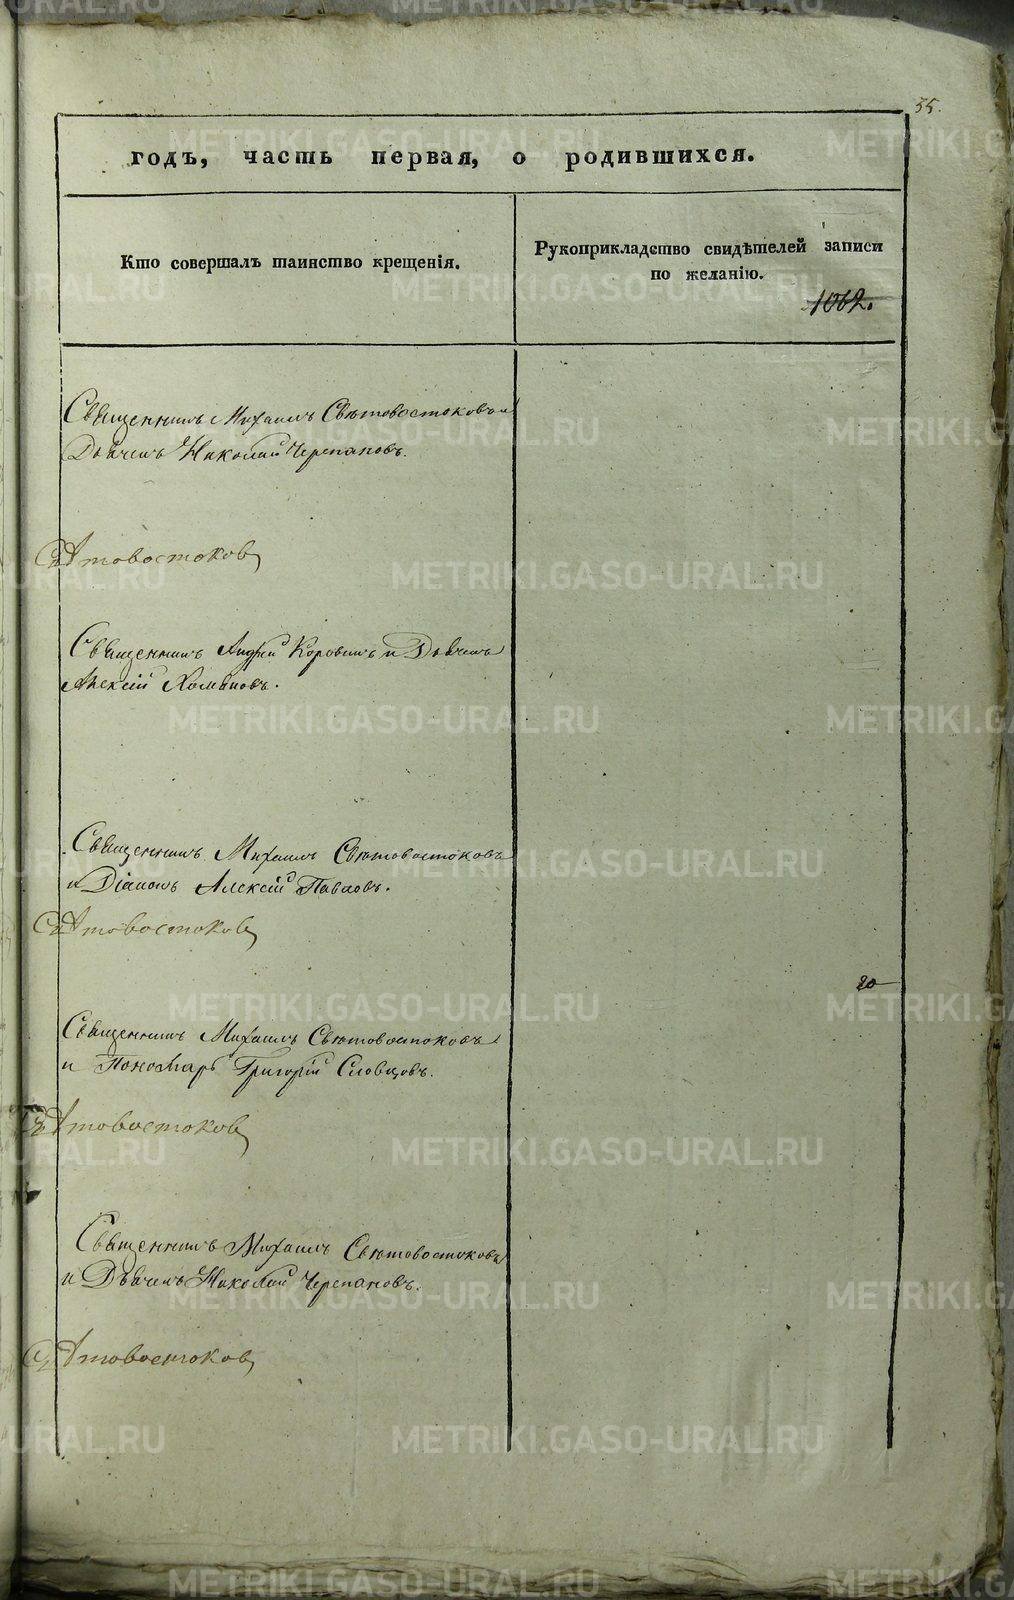 35.
годъ, часть первая, о родившихся.
Кто совершалъ таинство крещенія.
Рукоприкладство свидѣтелей записи
по желанію.
1062.
Священникъ Михаилъ Святовостоковъ и
Дьячекъ Николай Черепановъ.
Святовостоков
Священникъ Андрей Коровинъ и Дьячекъ
Алексій
Священникъ Михаилъ Святовостоковъ
и Діаконъ Алексій Павловъ.
Святовостоков
20
Священникъ Михаилъ Святовостоковъ
и Пономарь Григорій Словцовъ.
Святовостоков
Священникъ Михаилъ Святовостоковъ
и Дьячекъ Николай Черепановъ.
Святовостоков
METRIKI.GASO-URAL.RU